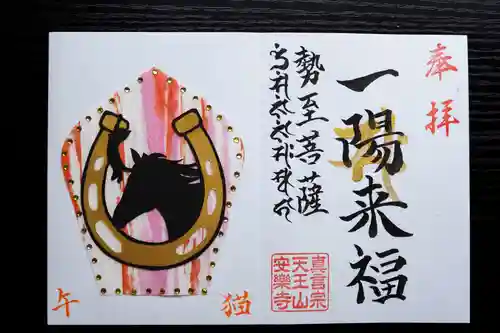 奉拝
一陽来福
勢至菩薩
真言宗
天王山
安樂寺
午
猫